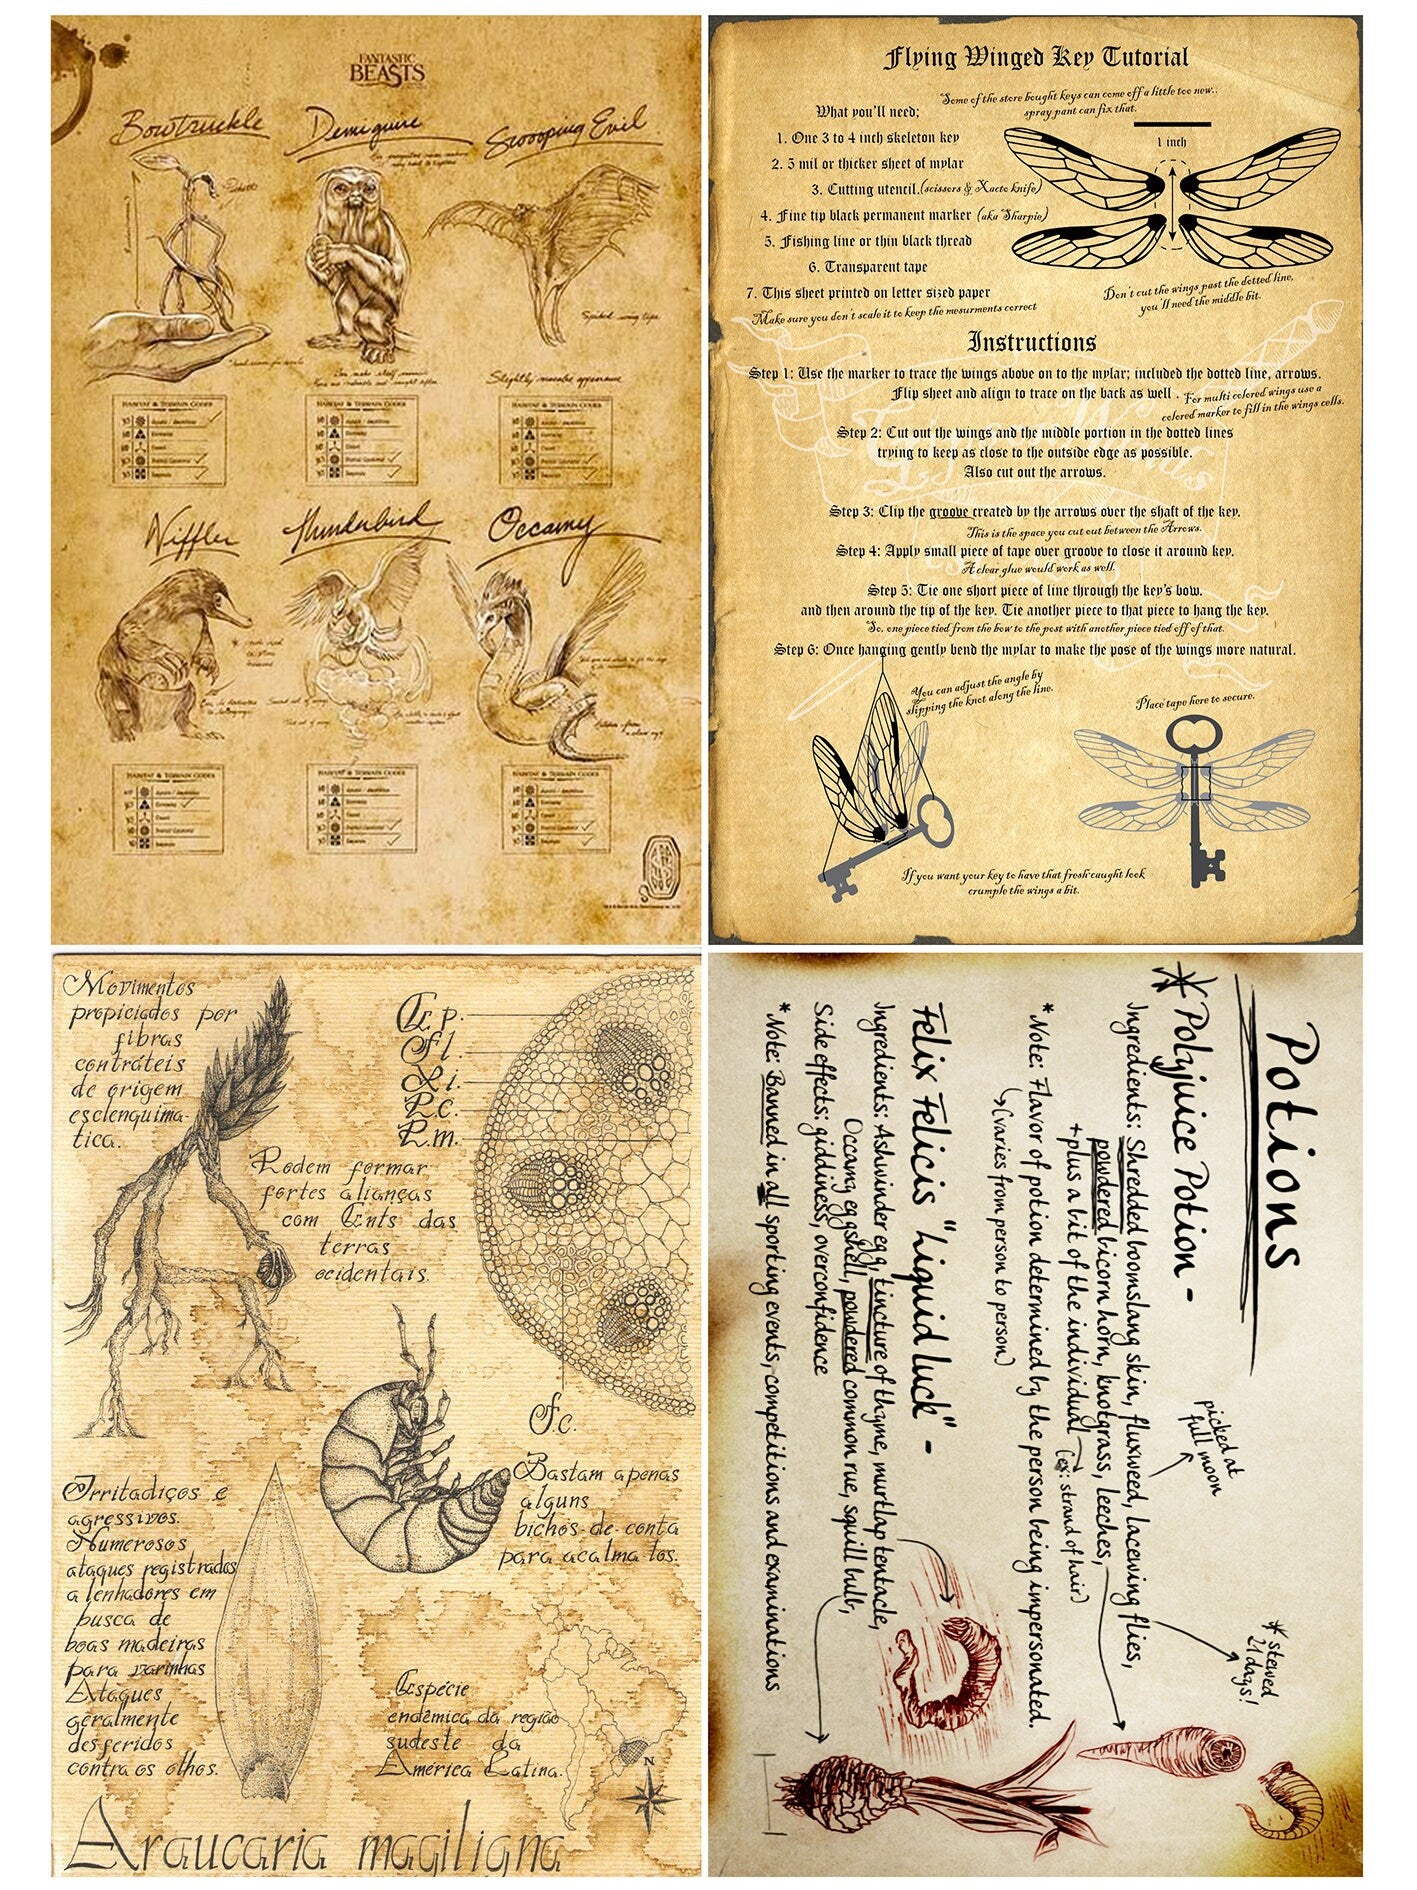 FANTASTIC
BEASTS
Bowtruckle
Demiguise
Swooping Evil
Slightly macabre appearance
HABITAT & TERRAIN CODES
HABITAT & TERRAIN CODES
HABITAT & TERRAIN CODES
Niffler
Thunderbird
Occamy
HABITAT & TERRAIN CODES
HABITAT & TERRAIN CODES
HABITAT & TERRAIN CODES
Flying Winged Key Tutorial
Some of the store bought keys can come off a little too new..
spray pant can fix that.
What you'll need;
1. One 3 to 4 inch skeleton key
2. 5 mil or thicker sheet of mylar
3. Cutting utencil.(scissors & Xacto knife)
4. Fine tip black permanent marker (aka Sharpie)
5. Fishing line or thin black thread
6. Transparent tape
7. This sheet printed on letter sized paper
Make sure you don't scale it to keep the mesurments correct
1 inch
Don't cut the wings past the dotted line,
you'll need the middle bit.
Instructions
Step 1: Use the marker to trace the wings above on to the mylar; included the dotted line, arrows.
Flip sheet and align to trace on the back as well .
For multi colored wings use a
colored marker to fill in the wings cells.
Step 2: Cut out the wings and the middle portion in the dotted lines
trying to keep as close to the outside edge as possible.
Also cut out the arrows.
Step 3: Clip the groove created by the arrows over the shaft of the key.
This is the space you cut out between the Arrows.
Step 4: Apply small piece of tape over groove to close it around key.
A clear glue would work as well.
Step 5: Tie one short piece of line through the key's bow.
and then around the tip of the key. Tie another piece to that piece to hang the key.
So, one piece tied from the bow to the post with another piece tied off of that.
Step 6: Once hanging gently bend the mylar to make the pose of the wings more natural.
You can adjust the angle by
slipping the knot along the line.
Place tape here to secure.
If you want your key to have that fresh caught look
crumple the wings a bit.
Movimentos
propiciados por
fibras
contráteis
de origem
esclenquima-
tica.
Ep.
Fl.
Xi.
P.c.
P.m.
Podem formar
fortes alianças
com Ents das
terras
ocidentais.
F.c.
Bastam apenas
alguns
bichos-de-conta
para acalma-los.
Irritadiços e
agressivos.
Numerosos
ataques registrados
a lenhadores em
busca de
boas madeiras
para varinhas
Ataques
geralmente
desferidos
contra os olhos.
Espécie
endêmica da região
sudeste da
América Latina.
N
Araucaria magiligna
Potions
* Polyjuice Potion -
Ingredients: Shredded boomslang skin, fluxweed, lacewing flies,
powdered bicorn horn, knotgrass, leeches,
+plus a bit of the individual (ex: strand of hair)
picked at
full moon
* stewed
21 days!
*Note: Flavor of potion determined by the person being impersonated.
(varies from person to person)
Felix Felicis "Liquid luck" -
Ingredients: Ashwinder egg, tincture of thyme, murtlap tentacle,
Occamy eggshell, powdered common rue, squill bulb,
Side effects: giddiness, overconfidence
*Note: Banned in all sporting events, competitions and examinations